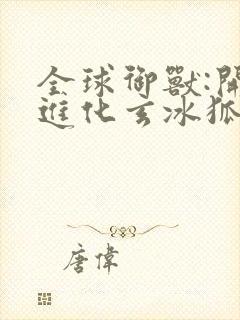 全球御獸:開
進化玄冰狐
唐偉